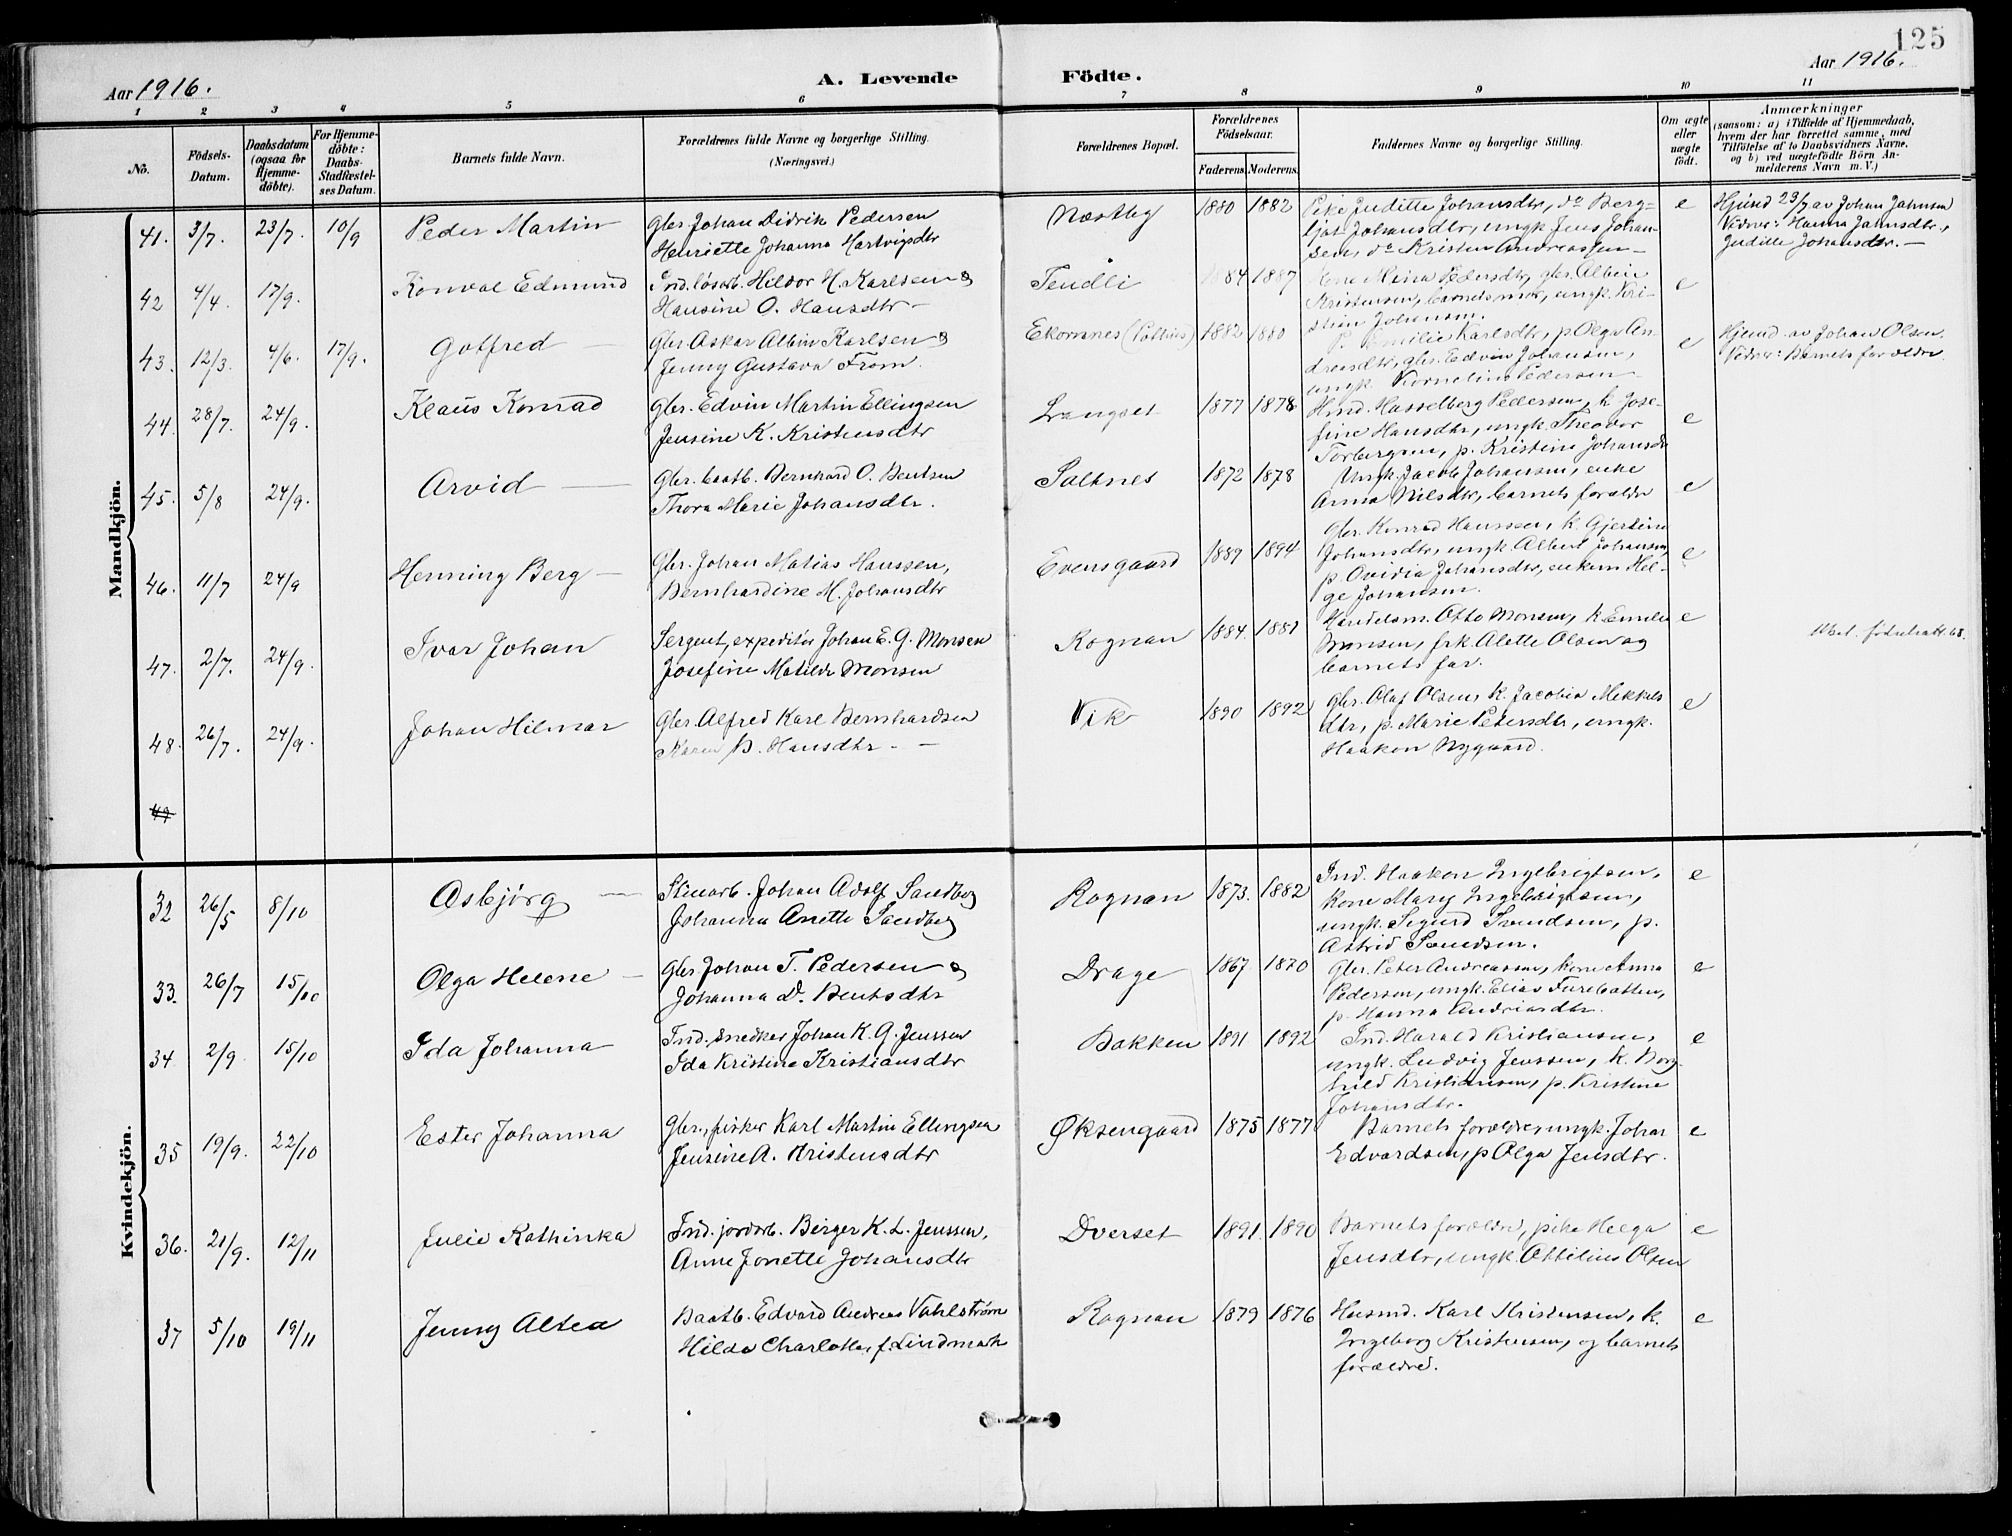 125
Aar 1916.
A. Levende Födte.
Aar 1916.
1 2 3 4 5 6 7 8 9 10 11
No.
Födsels-Datum.
Daabsdatum (ogsaa for Hjemmedöbte).
For Hjemmedöbte: Daabs-Stadfæstelses Datum.
Barnets fulde Navn.
Forældrenes fulde Navne og borgerlige Stilling.
(Næringsvei.)
Forældrenes Bopæl.
Forældrenes Födselsaar.
Faderens. Moderens.
Faddernes Navne og borgerlige Stilling.
Om ægte eller uægte födt.
Anmærkninger
(saasom: a) i Tilfælde af Hjemmedaab, hvem der har forrettet samme, med Tilföielse af to Daabsvidners Navne, og b) ved uægtefödte Börn Anmelderens Navn m. V.)
Mandkjön.
41. 3/7. 23/7. 10/9 Peder Martin
Gbr. Johan Didrik Pedersen
Henriette Johanna Hartvigsdtr
Næstby 1880 1882
Pike Juditte Johansdtr, do Berg-
ljot Johansdtr, ungk Jens Johan-
sen, do Kristen Andreassen
e
Hjemd 23/7 av Johan Jahnsen
Vidner: Hanna Jahnsdtr,
Juditte Johansdtr. —
42 4/4. 17/9. Konval Edmund
Ind. løsarb. Hildor H. Karlsen &
Hansine O. Hansdtr —
Tendli 1884 1887
Meina Pedersdtr, gbr. Albin
Kristensen, barnets mor, ungk. Kri-
stian Johansen.
e
43. 12/3. 4/6. 17/9. Gotfred —
Gbr. Oskar Albin Karlsen &
Jenny Gustava From.
Ekornnes (Saltnes) 1882 1880
P. Emilie Karlsdtr, p Olga An-
dreasdtr, gbr. Edvin Johansen,
ungk. Kornelius Pedersen
e
Hjemd. av Johan Olsen.
Vidner: Barnets forældre.
44. 28/7. 24/9. Klaus Konrad
Gbr. Edvin Martin Ellingsen
Jensine K. Kristensdtr
Langset 1877 1878
Hmd. Hasselberg Pedersen, k Jose-
fine Hansdtr, ungk. Theodor
Torbergsen, p. Kristine Johansdtr
e
45. 5/8 24/9. Arvid —
Gbr. baatb. Bernhard O. Bentsen
Thora Marie Johansdtr.
Saltnes 1872 1878
Ungk. Jacob Johansen, enke
Anna Nilsdtr, barnets forældre
e
46. 11/7 24/9 Henning Berg —
Gbr. Johan Matias Hanssen,
Bernhardine M. Johansdtr
Evensgaard 1889 1894
Gbr. Konrad Hanssen, k. Gjertine
Johansdtr, ungk. Albert Johansen,
p. Ovidia Johansdtr, enkem Hel-
ge Johansen.
e
47. 2/7. 24/9. Ivar Johan
Sergent, expeditør Johan E. G. Monsen
Josefine Matilde Monsen
Rognan 1884. 1881
Handelsm. Otto Monsen, k. Emilie
Monsen, frk. Alette Olsen og
barnets far.
e
48. 26/7. 24/9. Johan Hilmar
Gbr. Alfred Karl Bernhardsen
Karen B. Hansdtr — —
Vik 1890 1892
Gbr. Olaf Olsen, k. Jacobia Mikkels
dtr, p. Marie Petersdtr, ungk.
Haakon Nygaard.
e
49
Kvindekjön.
32 26/5 8/10 Asbjørg —
Stenarb. Johan Adolf Sandberg
Johanna Anette Sandberg
Rognan 1873. 1882
Ind. Haakon Ingebrigtsen,
kone Mary Ingebrigtsen,
ungk. Sigurd Svendsen, p.
Astrid Svendsen.
e
33. 26/7 15/10 Olga Helene —
Gbr. Johan T. Pedersen &
Johanna D. Bentsdtr
Drage 1867. 1870
Gbr. Peter Andreassen, kone Anna
Pedersen, ungk. Elias Furebotten,
p. Hanna Andreasdtr.
e
34 2/9. 15/10 Ida Johanna
Ind. snedker Johan K. G. Jenssen
Ida Kristine Kristiansdtr
Bakken 1891 1892
Ind. Harald Kristiansen,
ungk. Ludvig Jenssen, k. Borg-
hild Kristiansen, p. Kristine
Johansdtr.
e
35 19/9. 22/10 Ester Johanna
Gbr., fisker Karl Martin Ellingsen
Jensine A. Kristensdtr
Øksengaard 1875 1877
Barnets forældre, ungk. Johan
Edvardsen, p Olga Jensdtr.
e
36. 21/9. 12/11 Julie Kathinka
Ind. jordarb. Birger K. L. Jenssen,
Anne Jonette Johansdtr
Dverset 1891. 1890
Barnets forældre, pike Helga
Jensdtr, ungk. Ottilius Olsen
e
37 5/10 19/11 Jenny Altea
Baatb. Edvard Andreas Vahlstrøm
Hilda Charlotta, f. Lindmark
Rognan 1879 1876
Husmd. Karl Kristensen, k.
Ingeborg Kristensen, og barnets
forældre.
e